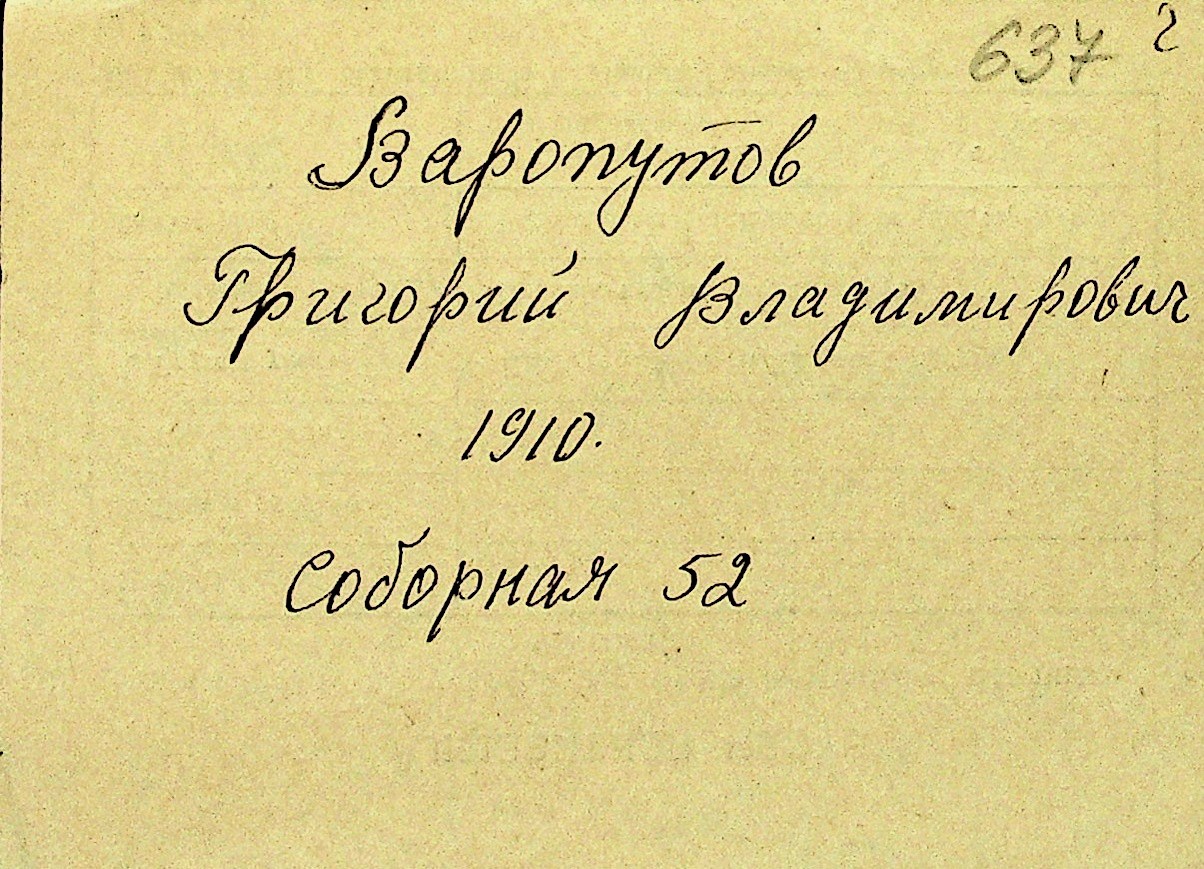 637 2
Варопутов
Григорий Владимирович
1910.
Соборная 52